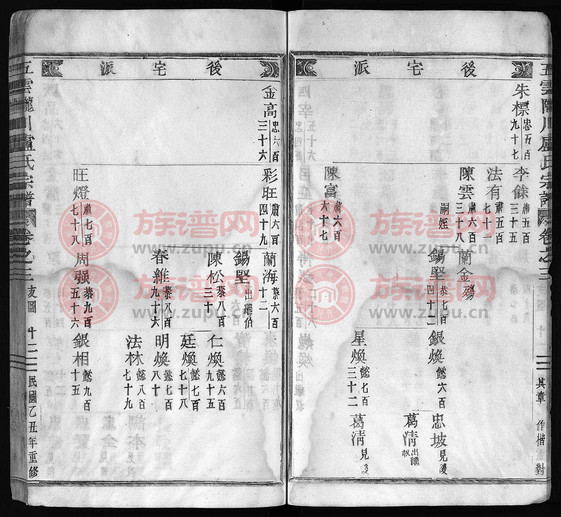 後宅派
朱標 忠五百九十七
李餘 肅五百三十五
法有 肅五百七十一
陳雲 肅六百三十八
嗣姪
蘭金殤
錫堅 恭七百四十二
銀煥 懿六百
忠坡 見後
葛清 出讓
陳富 肅六百六十七
星煥 懿七百三十二
葛清 見後
後宅派
金高 忠六百三十六
彩旺 肅六百四十九
蘭海 恭六百十二
錫堅 出繼伯
陳松 恭八百三十
仁煥 懿六百九十五
廷煥 懿七百七十八
春雜 恭八百九十六
明煥 懿八百八十
法林 懿八百七十九
旺燈 肅七百七十八
周强 恭九百五十六
銀相 懿九百十五
五雲 川盧氏宗譜 卷之三 支圖 十二 民國乙丑年重修
五雲 川盧氏宗譜 卷之三
族谱网
www.zupu.cn
族谱网
www.zupu.cn
族谱网
www.zupu.cn
族谱网
www.zupu.cn